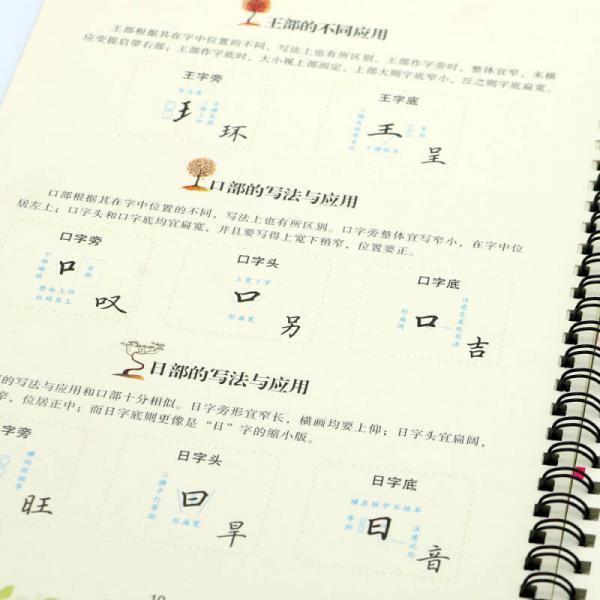 王部的不同应用
王部根据其在字中位置的不同,写法上也有所区别。王部作字旁时,整体宜窄,末横
应变提启带右部;王部作字底时,大小视上部而定,上部大则字底窄小,反之则字底扁宽。
王字旁
环
王字底
王
呈
口部的写法与应用
口部根据其在字中位置的不同,写法上也有所区别。口字旁整体宜写窄小,在字中位
居左上;口字头和口字底均宜扁宽,并且要写得上宽下稍窄,位置要正。
口字旁
下部略收
口
整体上仰
位稍居上
叹
口字头
上宽下窄
口
形扁宽
另
口字底
口
吉
日部的写法与应用
的写法与应用和口部十分相似。日字旁形宜窄长,横画均要上仰;日字头宜扁阔,
窄,位居正中;而日字底则更像是“日”字的缩小版。
字旁
横间距相等
旺
日字头
曰
形扁宽
旱
日字底
横在框中不接右
等距
日
音
10